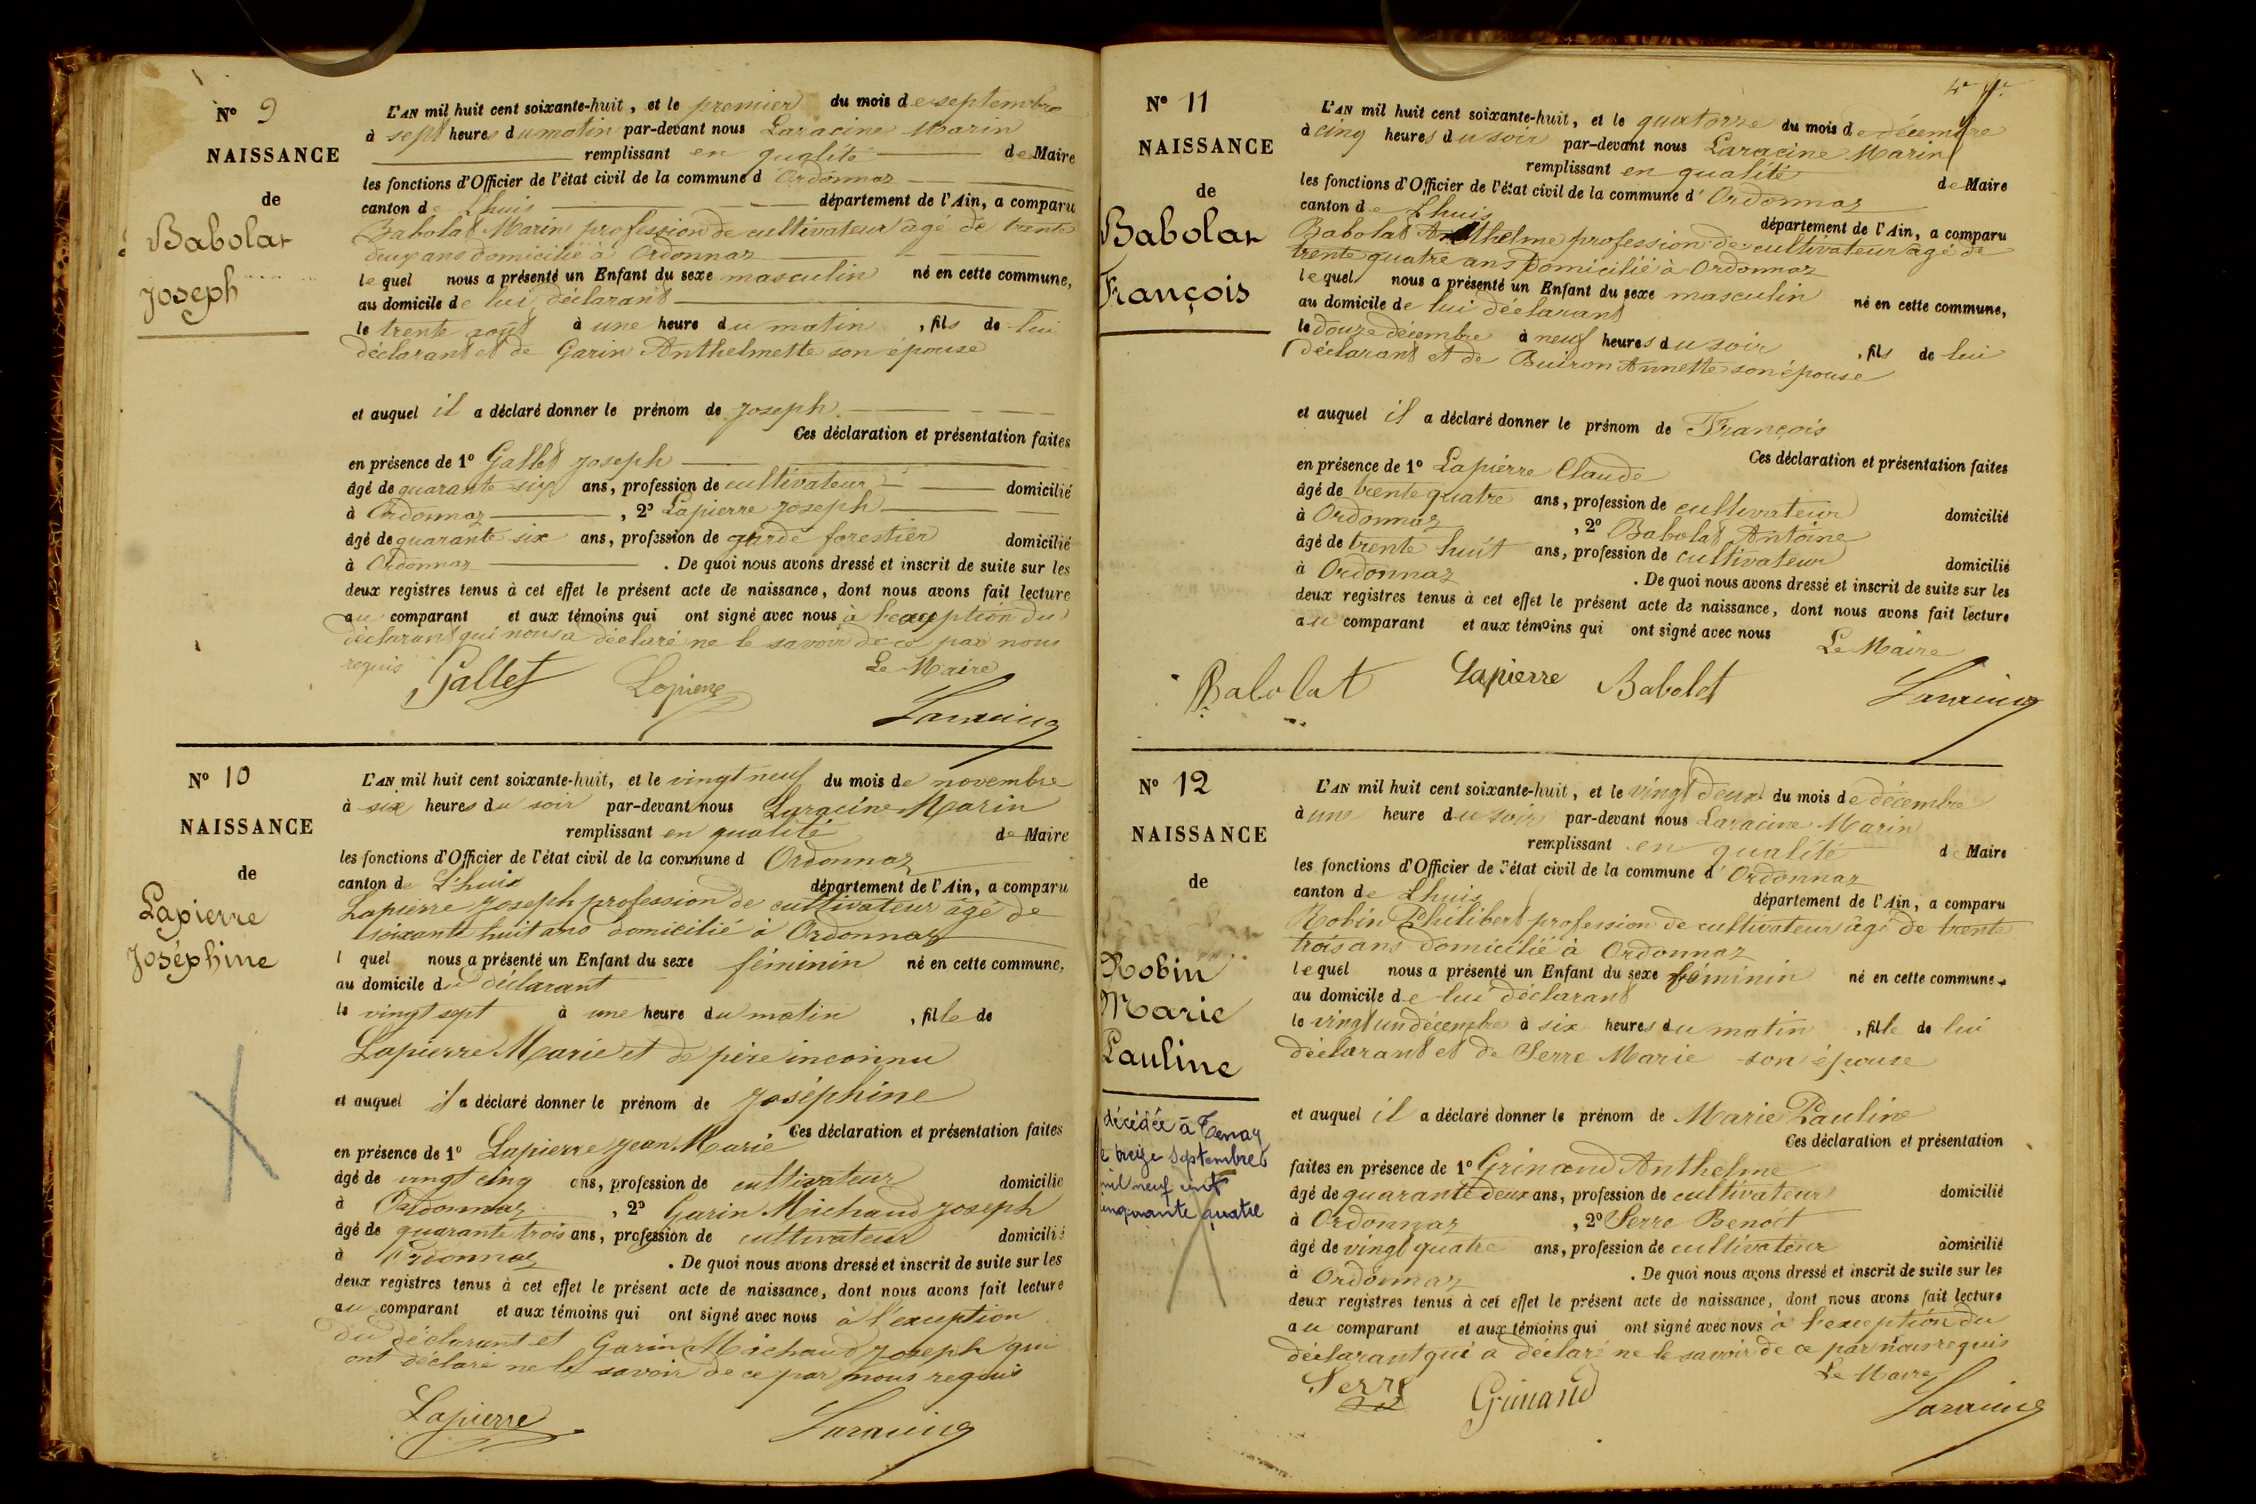 N° 9
NAISSANCE
de
Babolat
Joseph
L'AN mil huit cent soixante-huit, et le premier du mois de septembre
à sept heures du matin par-devant nous Laracine Marin
remplissant en qualité de Maire
les fonctions d'Officier de l'état civil de la commune d Ordonnaz
canton de Lhuis département de l'Ain, a comparu
Babolat Marin profession de cultivateur âgé de trente
deux ans domicilié à Ordonnaz
lequel nous a présenté un Enfant du sexe masculin né en cette commune,
au domicile de lui déclarant
le trente août à une heure du matin, fils de lui
déclarant et de Garin Anthelmette son épouse
et auquel il a déclaré donner le prénom de Joseph
Ces déclaration et présentation faites
en présence de 1° Gallet Joseph
âgé de quarante six ans, profession de cultivateur domicilié
à Ordonnaz, 2° Lapierre Joseph
âgé de quarante six ans, profession de garde forestier domicilié
à Ordonnaz. De quoi nous avons dressé et inscrit de suite sur les
deux registres tenus à cet effet le présent acte de naissance, dont nous avons fait lecture
au comparant et aux témoins qui ont signé avec nous à l'exception du
déclarant qui nous a déclaré ne le savoir de ce par nous
requis
Le Maire
Gallet Lapierre Laracine
N° 10
NAISSANCE
de
Lapierre
Joséphine
L'AN mil huit cent soixante-huit, et le vingt neuf du mois de novembre
à six heures du soir par-devant nous Laracine Marin
remplissant en qualité de Maire
les fonctions d'Officier de l'état civil de la commune d Ordonnaz
canton de L'huis département de l'Ain, a comparu
Lapierre Joseph profession de cultivateur âgé de
soixante huit ans domicilié à Ordonnaz
l quel nous a présenté un Enfant du sexe féminin né en cette commune,
au domicile du déclarant
le vingt sept à une heure du matin, fille de
Lapierre Marie et de père inconnu
et auquel il a déclaré donner le prénom de Joséphine
Ces déclaration et présentation faites
en présence de 1° Lapierre Jean Marie
âgé de vingt cinq ans, profession de cultivateur domicilié
à Ordonnaz, 2° Garin Michaud Joseph
âgé de quarante trois ans, profession de cultivateur domicilié
à Ordonnaz. De quoi nous avons dressé et inscrit de suite sur les
deux registres tenus à cet effet le présent acte de naissance, dont nous avons fait lecture
au comparant et aux témoins qui ont signé avec nous à l'exception
du déclarant et Garin Michaud Joseph qui
ont déclaré ne le savoir de ce par nous requis
Lapierre Laracine
N° 11
NAISSANCE
de
Babolat
François
L'AN mil huit cent soixante-huit, et le quatorze du mois de décembre
à cinq heures du soir par-devant nous Laracine Marin
remplissant en qualité de Maire
les fonctions d'Officier de l'état civil de la commune d' Ordonnaz
canton de Lhuis département de l'Ain, a comparu
Babolat Anthelme profession de cultivateur âgé de
trente quatre ans domicilié à Ordonnaz
lequel nous a présenté un Enfant du sexe masculin né en cette commune,
au domicile de lui déclarant
le douze décembre à neuf heures du soir, fils de lui
déclarant et de Buiron Annette son épouse
et auquel il a déclaré donner le prénom de François
Ces déclaration et présentation faites
en présence de 1° Lapierre Claude
âgé de trente quatre ans, profession de cultivateur domicilié
à Ordonnaz, 2° Babolat Antoine
âgé de trente huit ans, profession de cultivateur domicilié
à Ordonnaz. De quoi nous avons dressé et inscrit de suite sur les
deux registres tenus à cet effet le présent acte de naissance, dont nous avons fait lecture
au comparant et aux témoins qui ont signé avec nous
Le Maire
Babolat Lapierre Babolat Laracine
N° 12
NAISSANCE
de
Robin
Marie
Pauline
décédée à Tenay
le treize Septembre
mil neuf cent
cinquante quatre
L'AN mil huit cent soixante-huit, et le vingt deux du mois de décembre
à une heure du soir par-devant nous Laracine Marin
remplissant en qualité de Maire
les fonctions d'Officier de l'état civil de la commune d' Ordonnaz
canton de Lhuis département de l'Ain, a comparu
Robin Philibert profession de cultivateur âgé de trente
trois ans domicilié à Ordonnaz
lequel nous a présenté un Enfant du sexe féminin né en cette commune,
au domicile de lui déclarant
le vingt un décembre à six heures du matin, fille de lui
déclarant et de Serre Marie son épouse
et auquel il a déclaré donner le prénom de Marie Pauline
Ces déclaration et présentation
faites en présence de 1° Grinand Anthelme
âgé de quarante deux ans, profession de cultivateur domicilié
à Ordonnaz, 2° Serre Benoit
âgé de vingt quatre ans, profession de cultivateur domicilié
à Ordonnaz. De quoi nous avons dressé et inscrit de suite sur les
deux registres tenus à cet effet le présent acte de naissance, dont nous avons fait lecture
au comparant et aux témoins qui ont signé avec nous à l'exception du
déclarant qui a déclaré ne le savoir de ce par nous requis
Le Maire
Serre Grinand Laracine